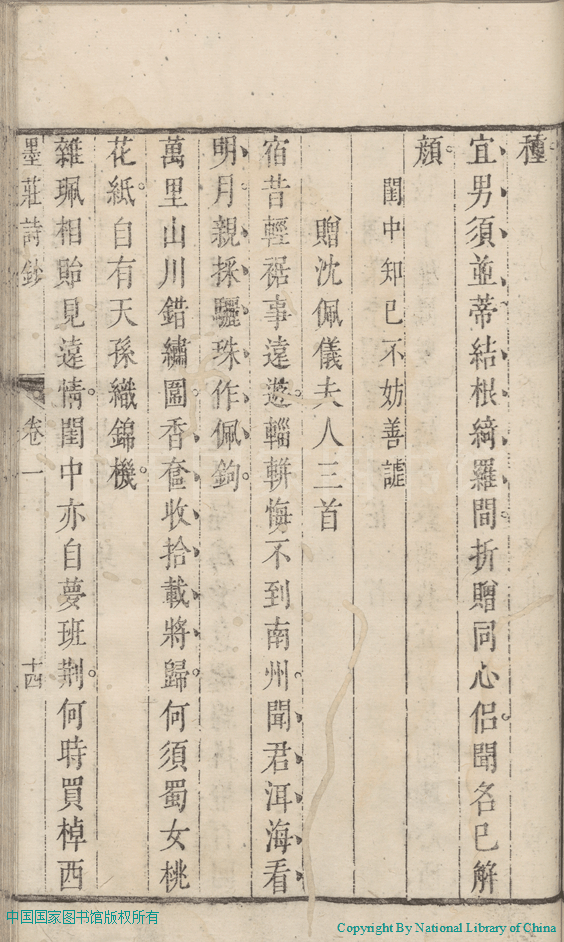 種。
宜男須並蒂結根綺羅間。折贈同心侶。聞名已解
顏。
閨中知已不妨善謔
贈沈佩儀夫人三首
宿昔輕裾事遠遊。輜軿悔不到南州。聞君洱海看
明月。親採驪珠作佩鉤。
萬里山川錯繡圖。香奩收拾載將歸。何須蜀女桃
花紙。自有天孫織錦機。
雜珮相貽見遠情。閨中亦自夢班荆。何時買棹西
墨莊詩鈔 卷一 十四
中国国家图书馆版权所有
Copyright By National Library of China